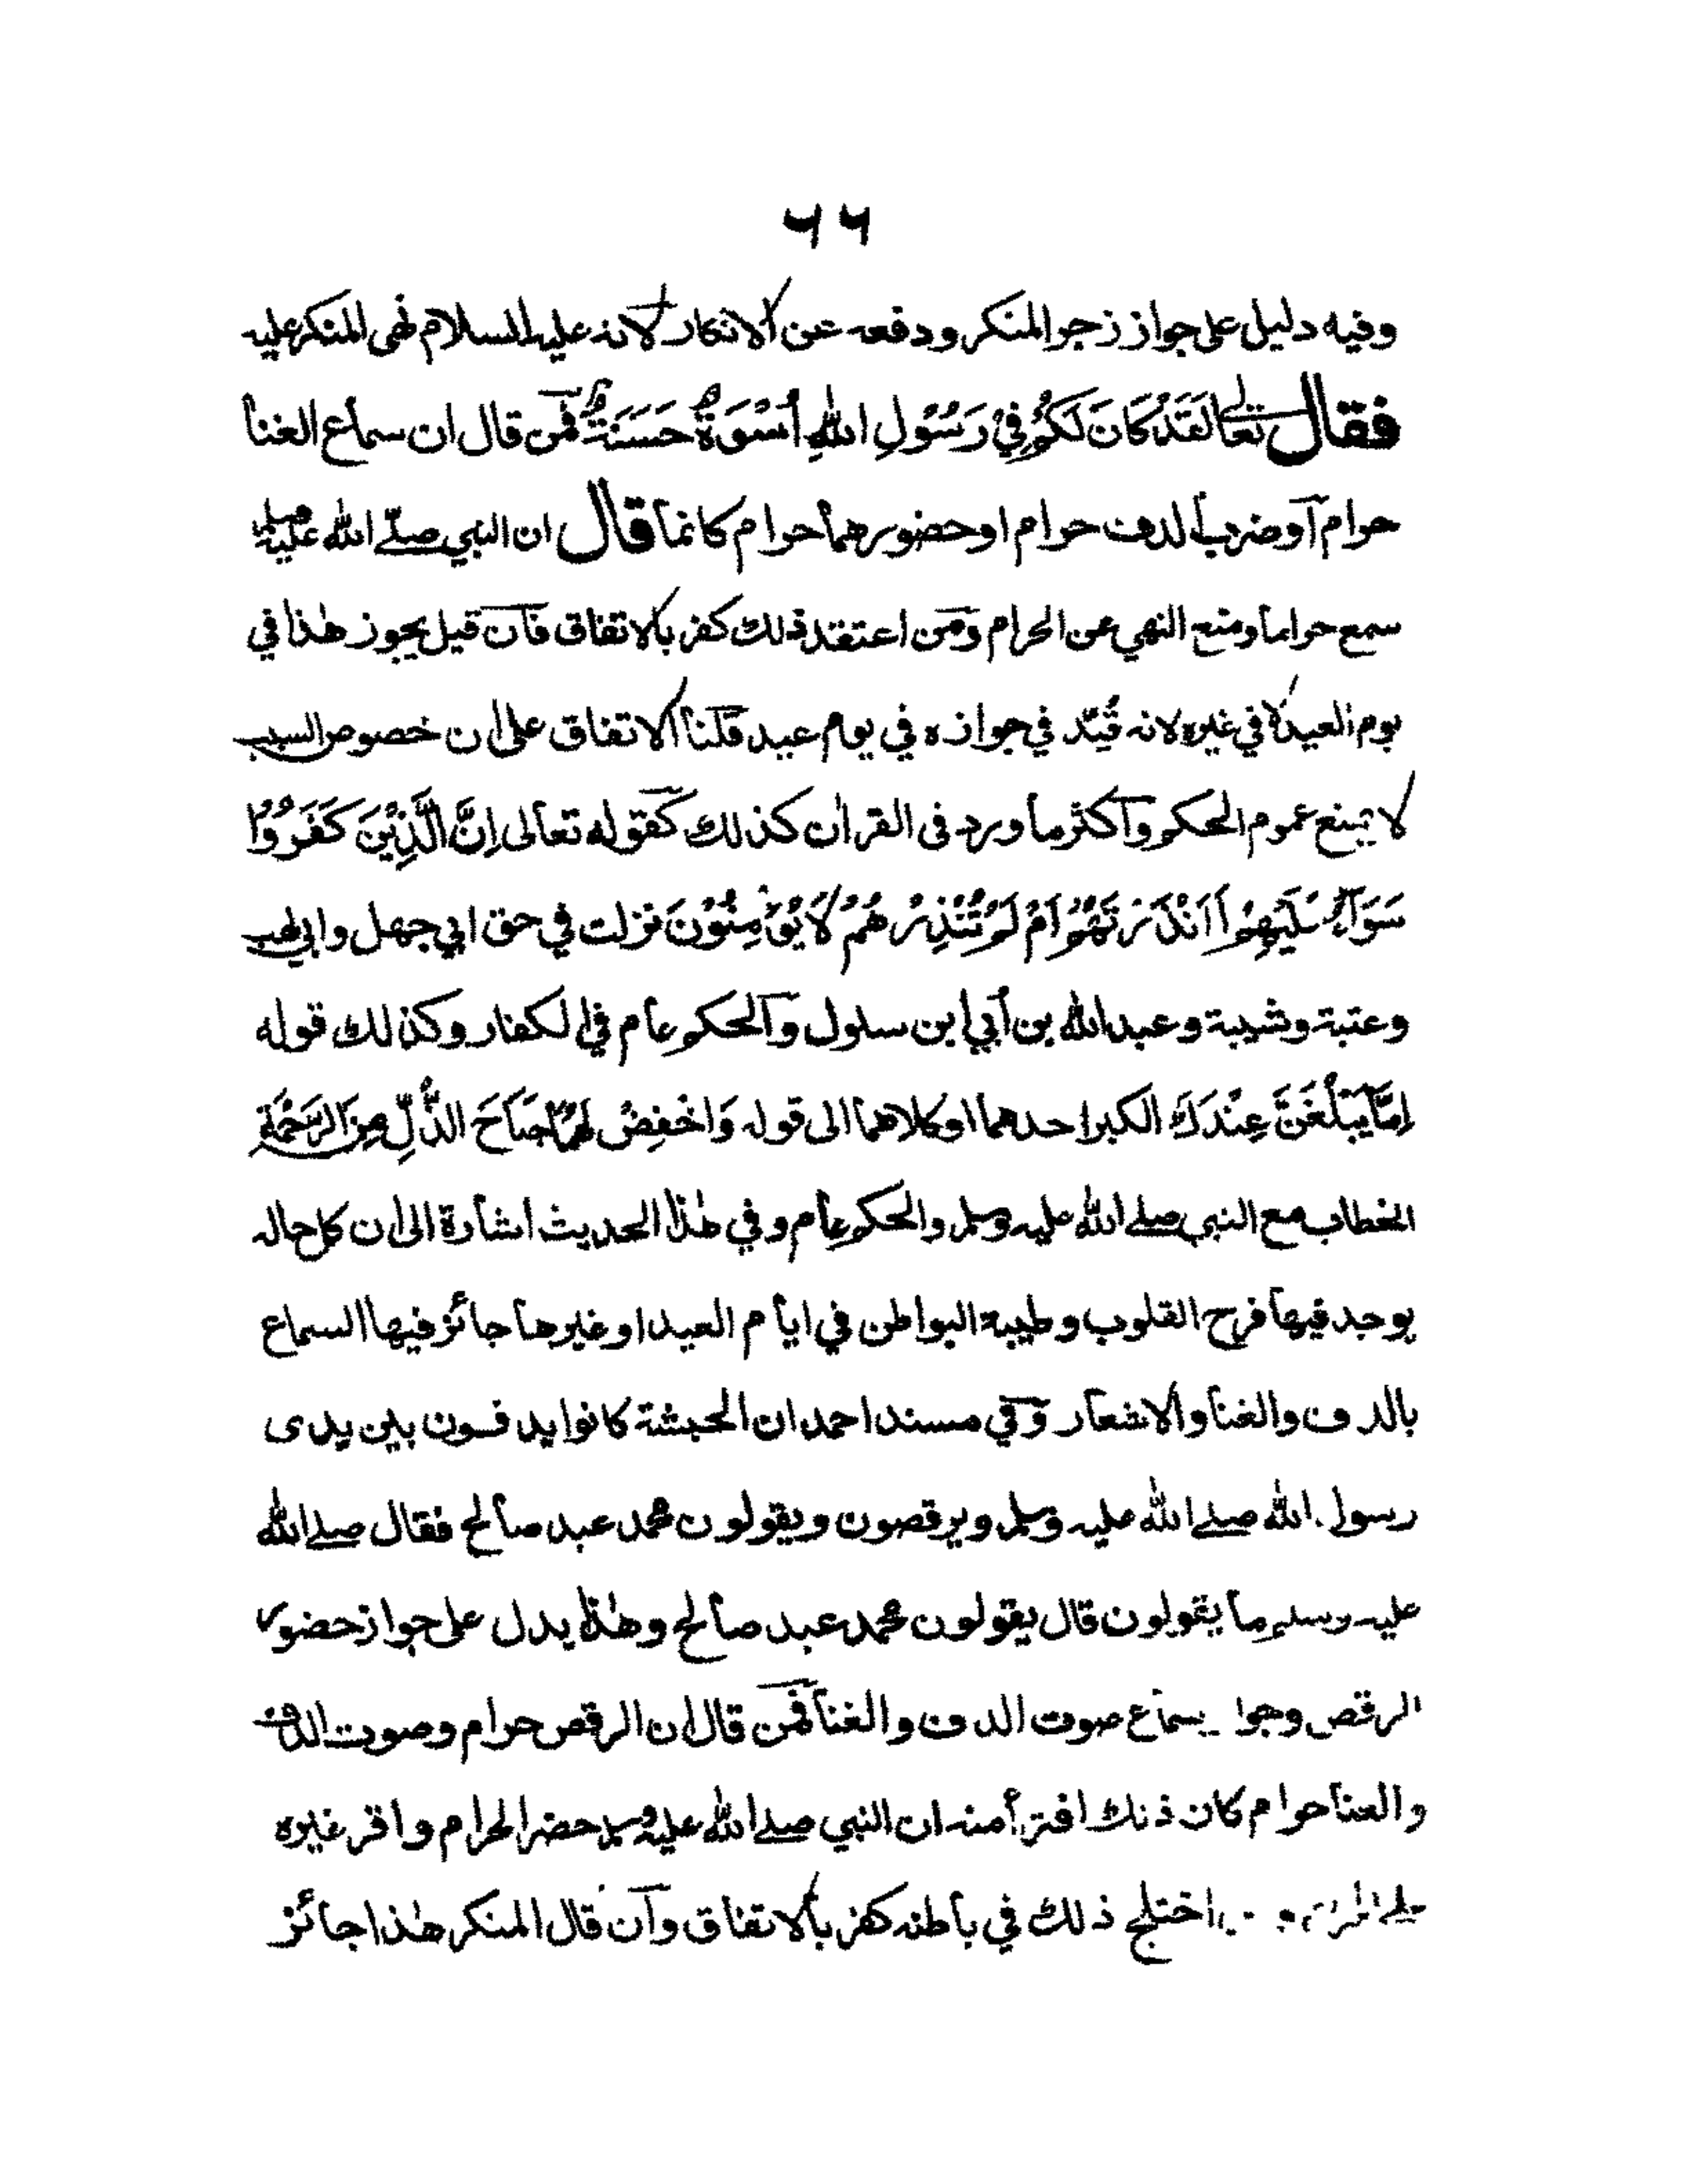 ۶۶
وفيه دليل على جواز زجر المنكر ودفعه عن الانكار لانه عليه السلام نهى المنكر عليه
فقال تعالى لَقَدْ كَانَ لَكُمْ فِيْ رَسُوْلِ اللهِ أُسْوَةٌ حَسَنَةٌ فمن قال ان سماع الغنا
حرام او ضرب الدف حرام او حضورهما حرام كانما قال ان النبي صلى الله عليه وسلم
سمع حراما ومنع النهي عن الحرام ومن اعتقد ذلك كفر بالاتفاق فان قيل يجوز هذا في
يوم العيد لا في غيره لانه قُيّد في جوازه في يوم عيد قلنا الاتفاق على ان خصوص السبب
لا يمنع عموم الحكم واكثر ما ورد فى القران كذلك كقوله تعالى اِنَّ الَّذِيْنَ كَفَرُوْا
سَوَآءٌ عَلَيْهِمْ أَاَنْذَرْتَهُمْ اَمْ لَمْ تُنْذِرْهُمْ لَا يُؤْمِنُوْنَ نزلت في حق ابي جهل وابي لهب
وعتبة وشيبة وعبد الله بن أبي ابن سلول والحكم عام في الكفار وكذلك قوله
اِمَّا يَبْلُغَنَّ عِنْدَكَ الكبر احدهما او كلاهما الى قوله وَاخْفِضْ لَهُمَا جَنَاحَ الذُّلِّ مِنَ الرَّحْمَةِ
الخطاب مع النبي صلى الله عليه وسلم والحكم عام وفي هذا الحديث اشارة الى ان كل حالة
يوجد فيها فرح القلوب وطيبة البواطن في ايام العيد او غيرها جائز فيها السماع
بالدف والغنا والاشعار وفي مسند احمد ان الحبشة كانوا يدفون بين يدى
رسول الله صلى الله عليه وسلم ويرقصون ويقولون محمد عبد صالح فقال صلى الله
عليه وسلم ما يقولون قال يقولون محمد عبد صالح وهذا يدل على جواز حضور
الرقص وجوا سماع صوت الدف والغنا فمن قال ان الرقص حرام وصوت الدف
والغنا حرام كان ذلك افترأ منه ان النبي صلى الله عليه وسلم حضر الحرام واقر غيره
على الحرام و اختلج ذلك في باطنه كفر بالاتفاق وان قال المنكر هذا جائز